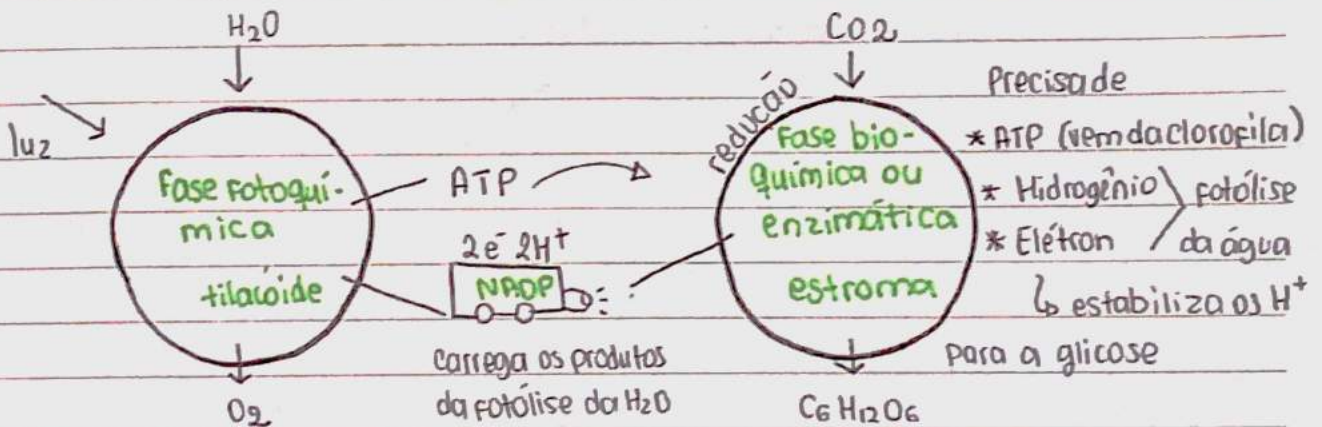 H₂O
luz
Fase fotoquí-
mica
tilacóide
O₂
ATP
2e⁻ 2H⁺
NADP
carrega os produtos
da fotólise da H₂O
CO2
redução
Fase bio-
química ou
enzimática
estroma
C₆H₁₂O₆
Precisa de
* ATP (vem da clorofila)
* Hidrogênio
* Elétron
fotólise
da água
↳ estabiliza os H⁺
para a glicose